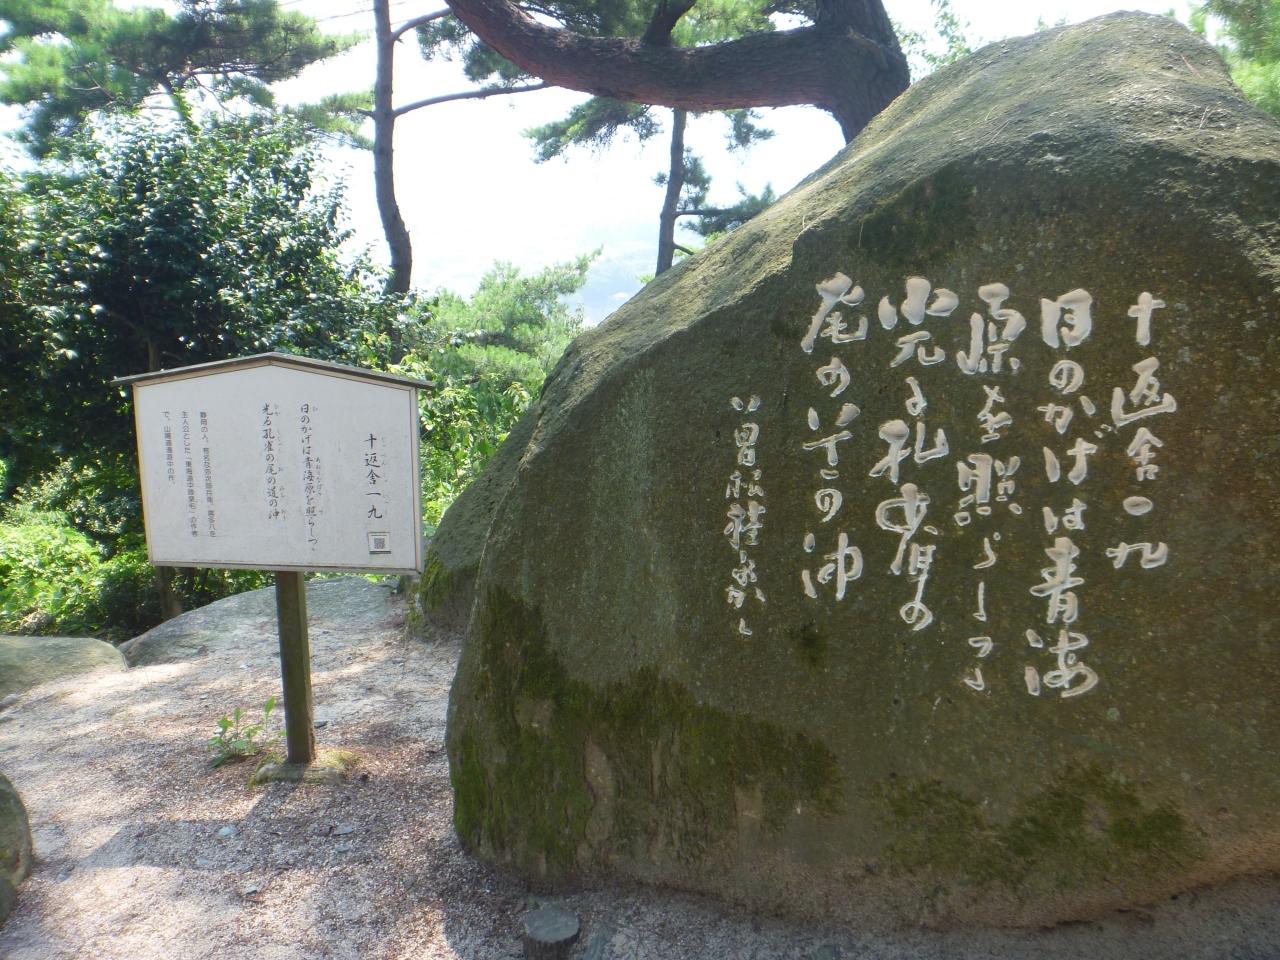 十返舎一九
日のかげは青海
原を照らしつゝ
光る孔雀の
尾のみちの沖
十返舎一九
日のかげは青海原を照らしつゝ
光る孔雀の尾の道の沖
静岡の人。有名な弥次郎兵衛、喜多八を
主人公とした「東海道中膝栗毛」の作者
で、山陽道漫遊中の作。